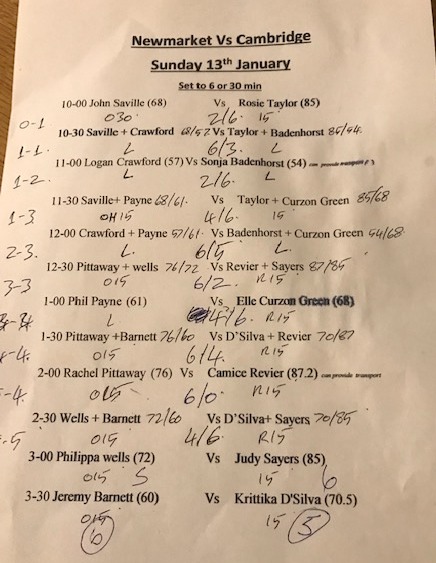 Newmarket Vs Cambridge
Sunday 13th January
Set to 6 or 30 min
10-00 John Saville (68) Vs Rosie Taylor (85)
0-1 030 2/6. 15
10-30 Saville + Crawford 68/57 Vs Taylor + Badenhorst 85/54.
1-1. L 6/3. L
11-00 Logan Crawford (57) Vs Sonja Badenhorst (54) can provide transport
1-2. L 2/6. L
11-30 Saville+ Payne 68/61. Vs Taylor + Curzon Green 85/68
1-3 OH15 4/6. 15
12-00 Crawford + Payne 57/61. Vs Badenhorst + Curzon Green 54/68
2-3. L. 6/5 L.
12-30 Pittaway + wells 76/72 Vs Revier + Sayers 87/85
3-3 015 6/2. R15
1-00 Phil Payne (61) Vs Elle Curzon Green (68)
L 4/6. R15
1-30 Pittaway +Barnett 76/60 Vs D'Silva + Revier 70/87
-4. 015 6/4. R15
2-00 Rachel Pittaway (76) Vs Camice Revier (87.2) can provide transport
-4. 015 6/0. R15
2-30 Wells + Barnett 72/60 Vs D'Silva+ Sayers 70/85
-5 015 4/6. R15
3-00 Philippa wells (72) Vs Judy Sayers (85)
015 5 15 6
3-30 Jeremy Barnett (60) Vs Krittika D'Silva (70.5)
015 15
6 5